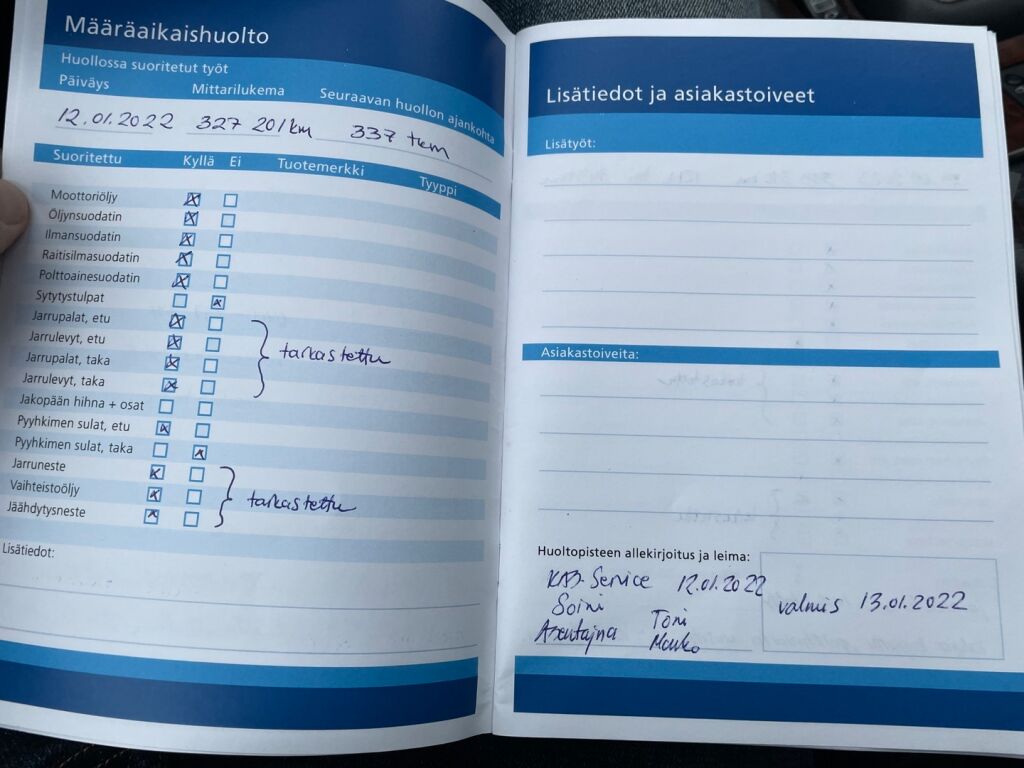 Määräaikaishuolto
Huollossa suoritetut työt
Päiväys Mittarilukema Seuraavan huollon ajankohta
12.01.2022 327 201km 337 tkm
Suoritettu Kyllä Ei Tuotemerkki Tyyppi
Moottoriöljy
Öljynsuodatin
Ilmansuodatin
Raitisilmasuodatin
Polttoainesuodatin
Sytytystulpat
Jarrupalat, etu
Jarrulevyt, etu
tarkastettu
Jarrupalat, taka
Jarrulevyt, taka
Jakopään hihna + osat
Pyyhkimen sulat, etu
Pyyhkimen sulat, taka
Jarruneste
Vaihteistoöljy
tarkastettu
Jäähdytysneste
Lisätiedot:
Lisätiedot ja asiakastoiveet
Lisätyöt:
Asiakastoiveita:
Huoltopisteen allekirjoitus ja leima:
Service 12.01.2022
Soini Toni
Marko
valmis 13.01.2022